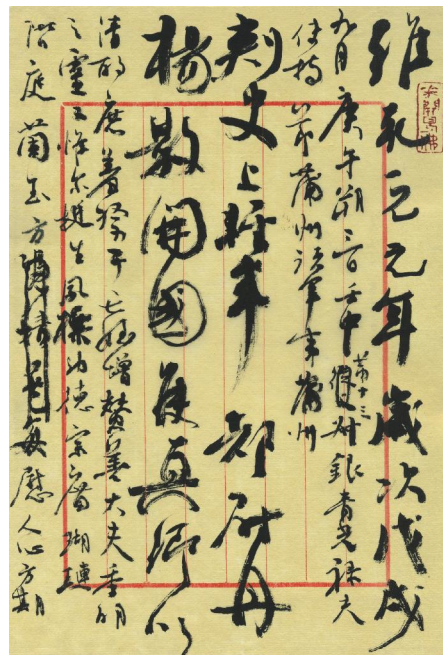 維乾元元年歲次戊戌
九月庚午朔三日壬申第十三從父銀青光祿夫
使持節蒲州諸軍事蒲州
刺史上輕車都尉丹
楊縣開國侯真卿以
清酌庶羞祭于亡姪贈贊善大夫季明
之靈曰惟爾挺生夙標幼德宗廟瑚璉
階庭蘭玉方每慰人心方期